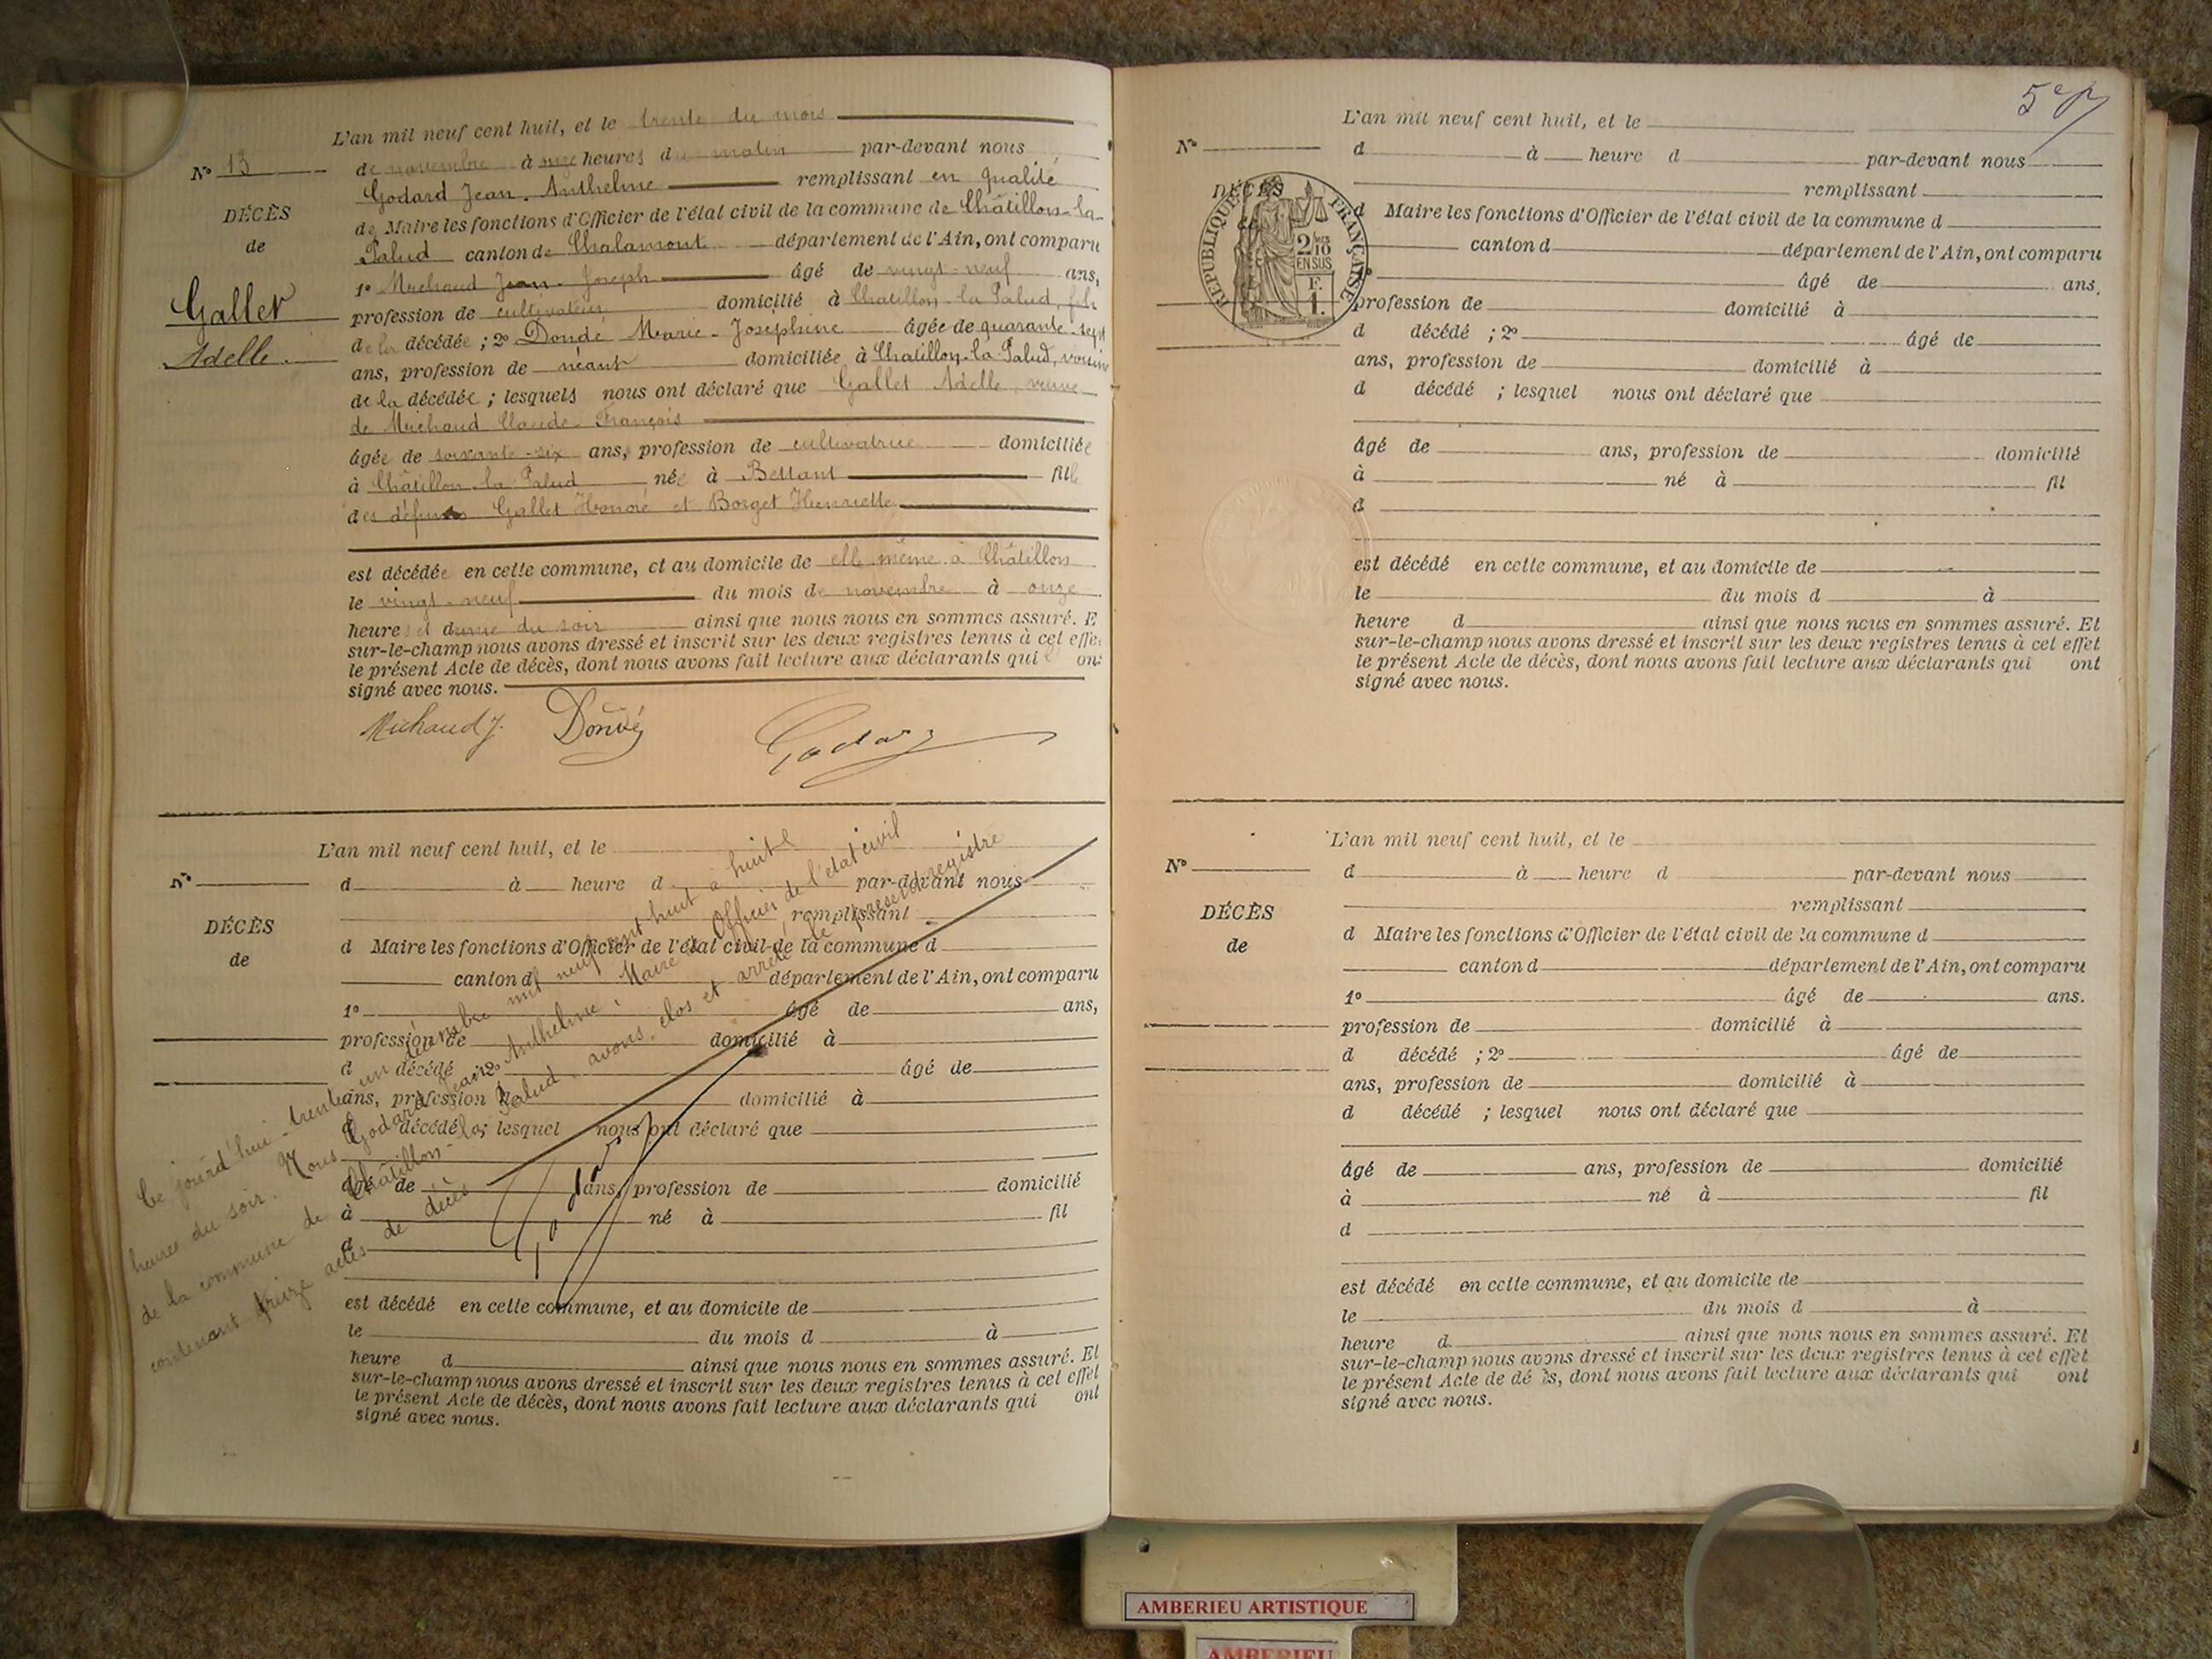 L'an mil neuf cent huit, et le trente du mois
N° 13
de novembre à onze heures du matin par-devant nous
Godard Jean-Anthelme remplissant en qualité
DÉCÈS
de
Gallet
Adelle
de Maire les fonctions d'Officier de l'état civil de la commune de Châtillon-la-
Palud canton de Chalamont département de l'Ain, ont comparu
1° Michaud Jean-Joseph âgé de vingt-neuf ans,
profession de cultivateur domicilié à Châtillon-la-Palud, fils
de la décédée ; 2° Donde Marie-Joséphine âgée de quarante-sept
ans, profession de néant domiciliée à Châtillon-la-Palud, voisine
de la décédée ; lesquels nous ont déclaré que Gallet Adelle, veuve
de Michaud Claude-François
âgée de soixante-six ans, profession de cultivatrice domiciliée
à Châtillon-la-Palud née à Bettant fille
des défunts Gallet Honoré et Borget Henriette
est décédée en cette commune, et au domicile de elle même à Châtillon
le vingt-neuf du mois de novembre à onze
heures du soir ainsi que nous nous en sommes assuré. E
sur-le-champ nous avons dressé et inscrit sur les deux registres tenus à cet effe
le présent Acte de décès, dont nous avons fait lecture aux déclarants qui ont
signé avec nous.
Michaud J. Donde Godard
L'an mil neuf cent huit, et le
N°
d à heure d par-devant nous
remplissant
DÉCÈS
de
d Maire les fonctions d'Officier de l'état civil de la commune d
canton d département de l'Ain, ont comparu
1° âgé de ans,
profession de domicilié à
d décédé ; 2° âgé de
ans, profession de domicilié à
d décédé ; lesquel nous ont déclaré que
âgé de ans, profession de domicilié
à né à fil
d
est décédé en cette commune, et au domicile de
le du mois d à
heure d ainsi que nous nous en sommes assuré. Et
sur-le-champ nous avons dressé et inscrit sur les deux registres tenus à cet effet
le présent Acte de décès, dont nous avons fait lecture aux déclarants qui ont
signé avec nous.
Ce jourd'hui trente un décembre mil neuf cent huit à huit
heures du soir. Nous Godard Jean Anthelme, Maire et Officier de l'état civil
de la commune de Châtillon-la-Palud avons clos et arrêté le présent registre
contenant treize actes de décès
L'an mil neuf cent huit, et le
N°
d à heure d par-devant nous
remplissant
DÉCÈS
RÉPUBLIQUE FRANÇAISE
2/10 EN SUS
F. 1.
d Maire les fonctions d'Officier de l'état civil de la commune d
canton d département de l'Ain, ont comparu
âgé de ans,
profession de domicilié à
d décédé ; 2° âgé de
ans, profession de domicilié à
d décédé ; lesquel nous ont déclaré que
âgé de ans, profession de domicilié
à né à fil
d
est décédé en cette commune, et au domicile de
le du mois d à
heure d ainsi que nous nous en sommes assuré. Et
sur-le-champ nous avons dressé et inscrit sur les deux registres tenus à cet effet
le présent Acte de décès, dont nous avons fait lecture aux déclarants qui ont
signé avec nous.
L'an mil neuf cent huit, et le
N°
d à heure d par-devant nous
remplissant
DÉCÈS
de
d Maire les fonctions d'Officier de l'état civil de la commune d
canton d département de l'Ain, ont comparu
1° âgé de ans.
profession de domicilié à
d décédé ; 2° âgé de
ans, profession de domicilié à
d décédé ; lesquel nous ont déclaré que
âgé de ans, profession de domicilié
à né à fil
d
est décédé en cette commune, et au domicile de
le du mois d à
heure d ainsi que nous nous en sommes assuré. Et
sur-le-champ nous avons dressé et inscrit sur les deux registres tenus à cet effet
le présent Acte de dé ès, dont nous avons fait lecture aux déclarants qui ont
signé avec nous.
AMBERIEU ARTISTIQUE
AMBERIEU